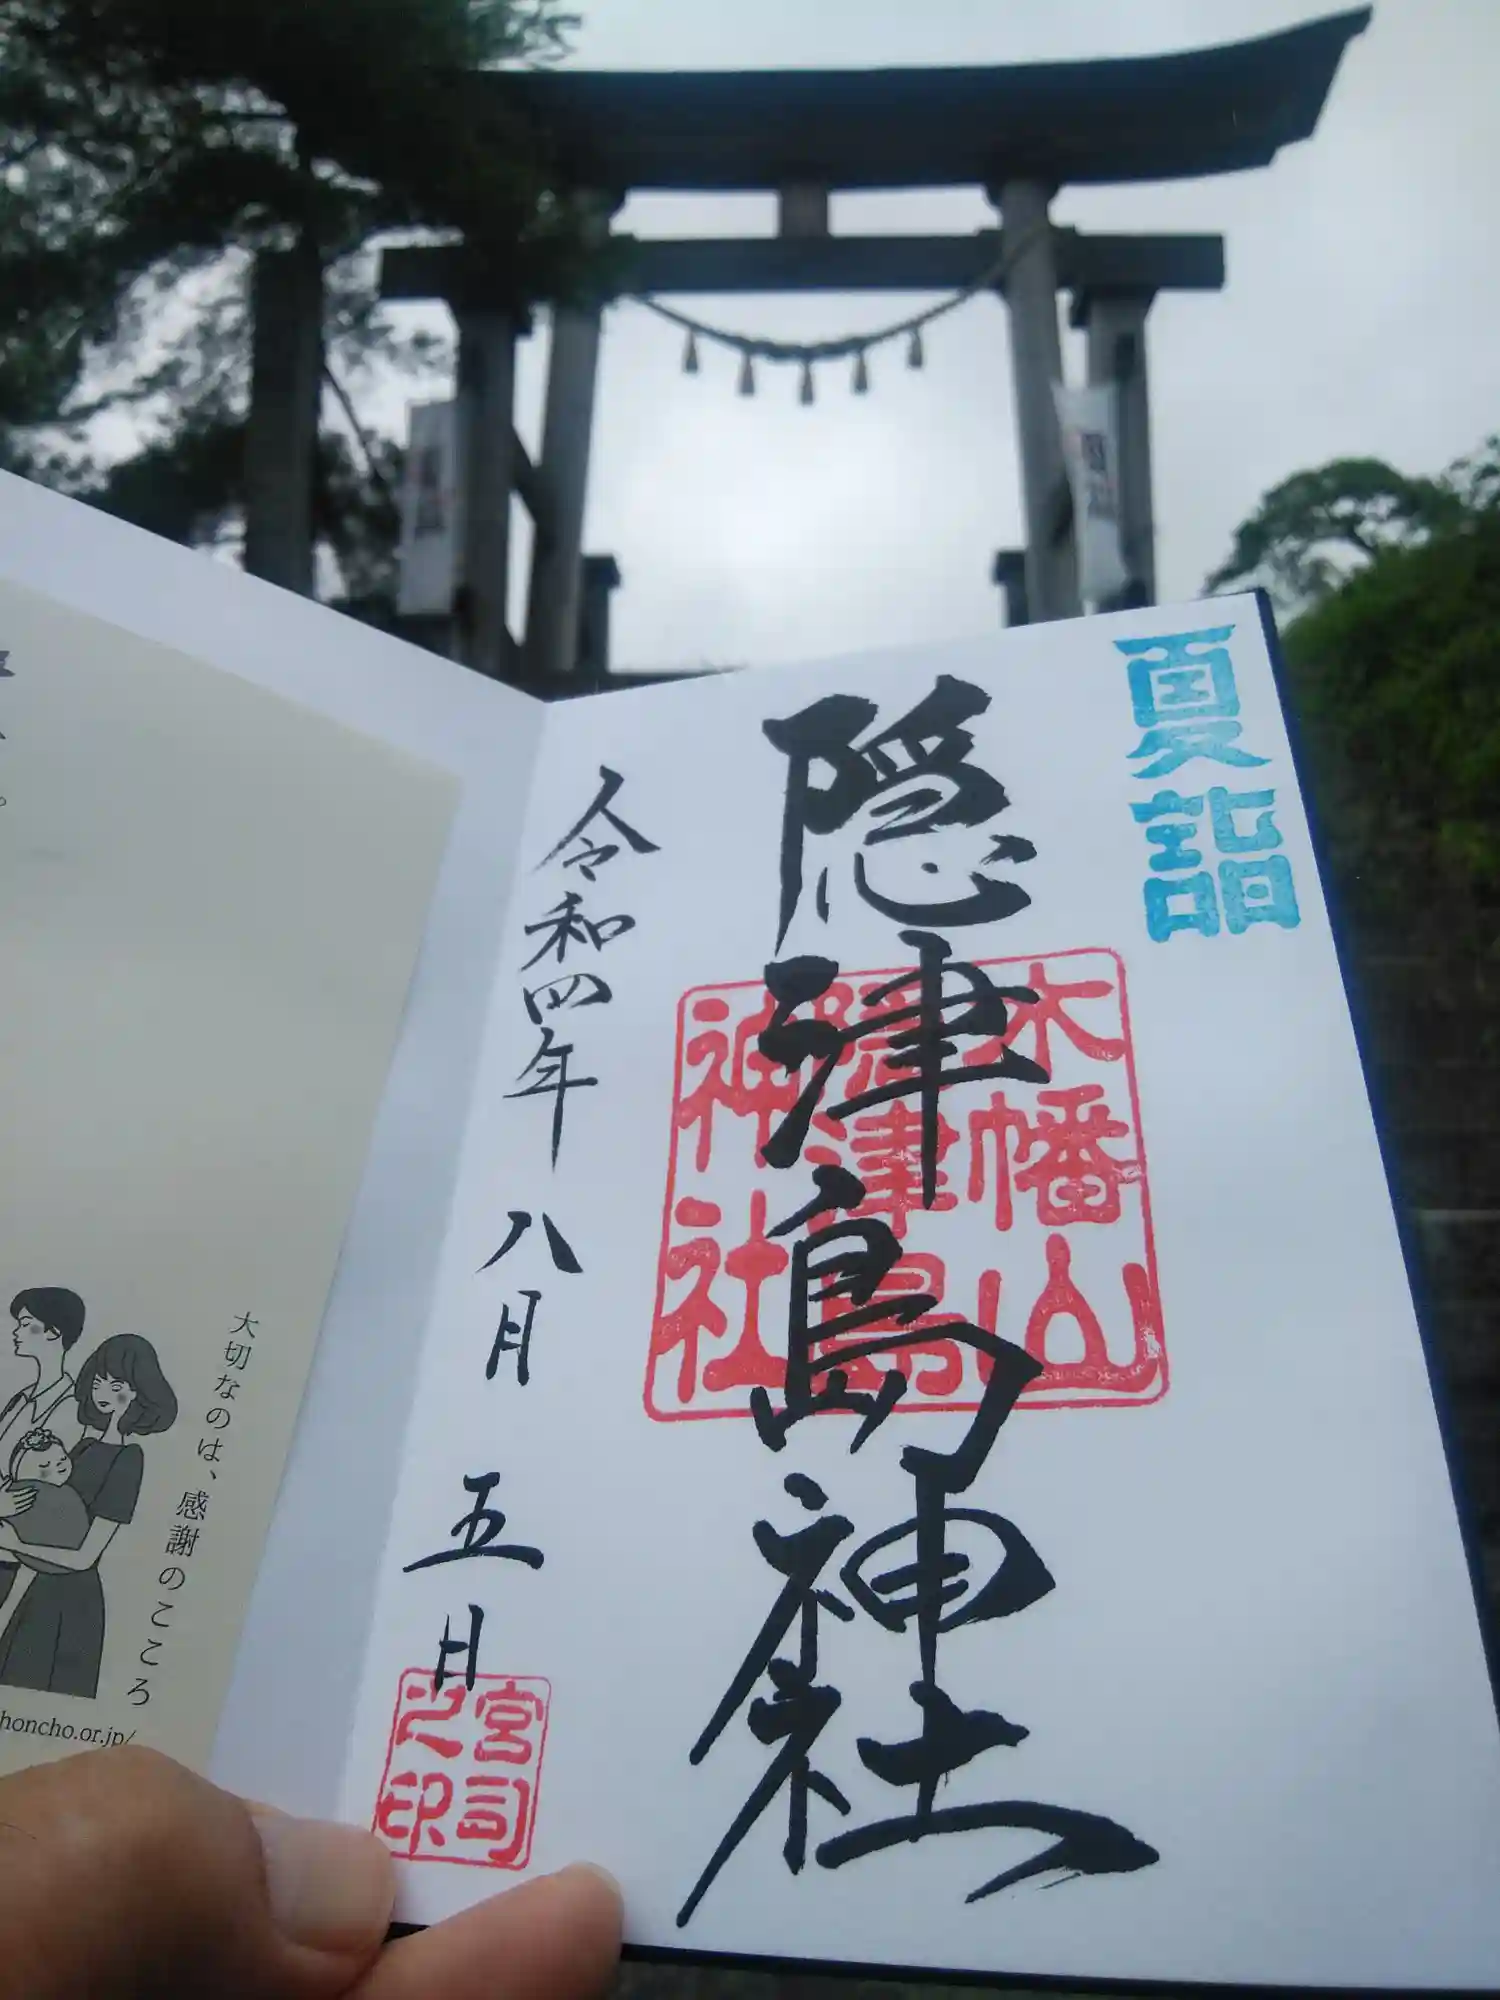 夏詣
隠津島神社
木幡山
隠津島
神社
令和四年 八月 五日
宮司
之印
大切なのは、感謝のこころ
honcho.or.jp/